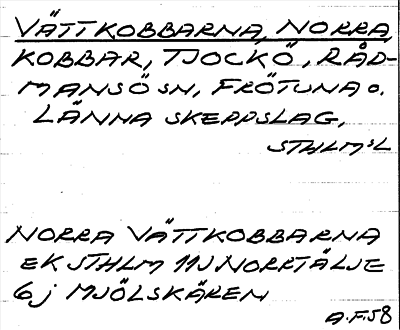 VÄTTKOBBARNA, NORRA
KOBBAR, TJOCKÖ, RÅD-
MANSÖ SN, FRÖTUNA o.
LÄNNA SKEPPSLAG,
STHLMSL
NORRA VÄTTKOBBARNA
EK STHLM 11J NORRTÄLJE
6j MJÖLSKÄREN
A.F.58